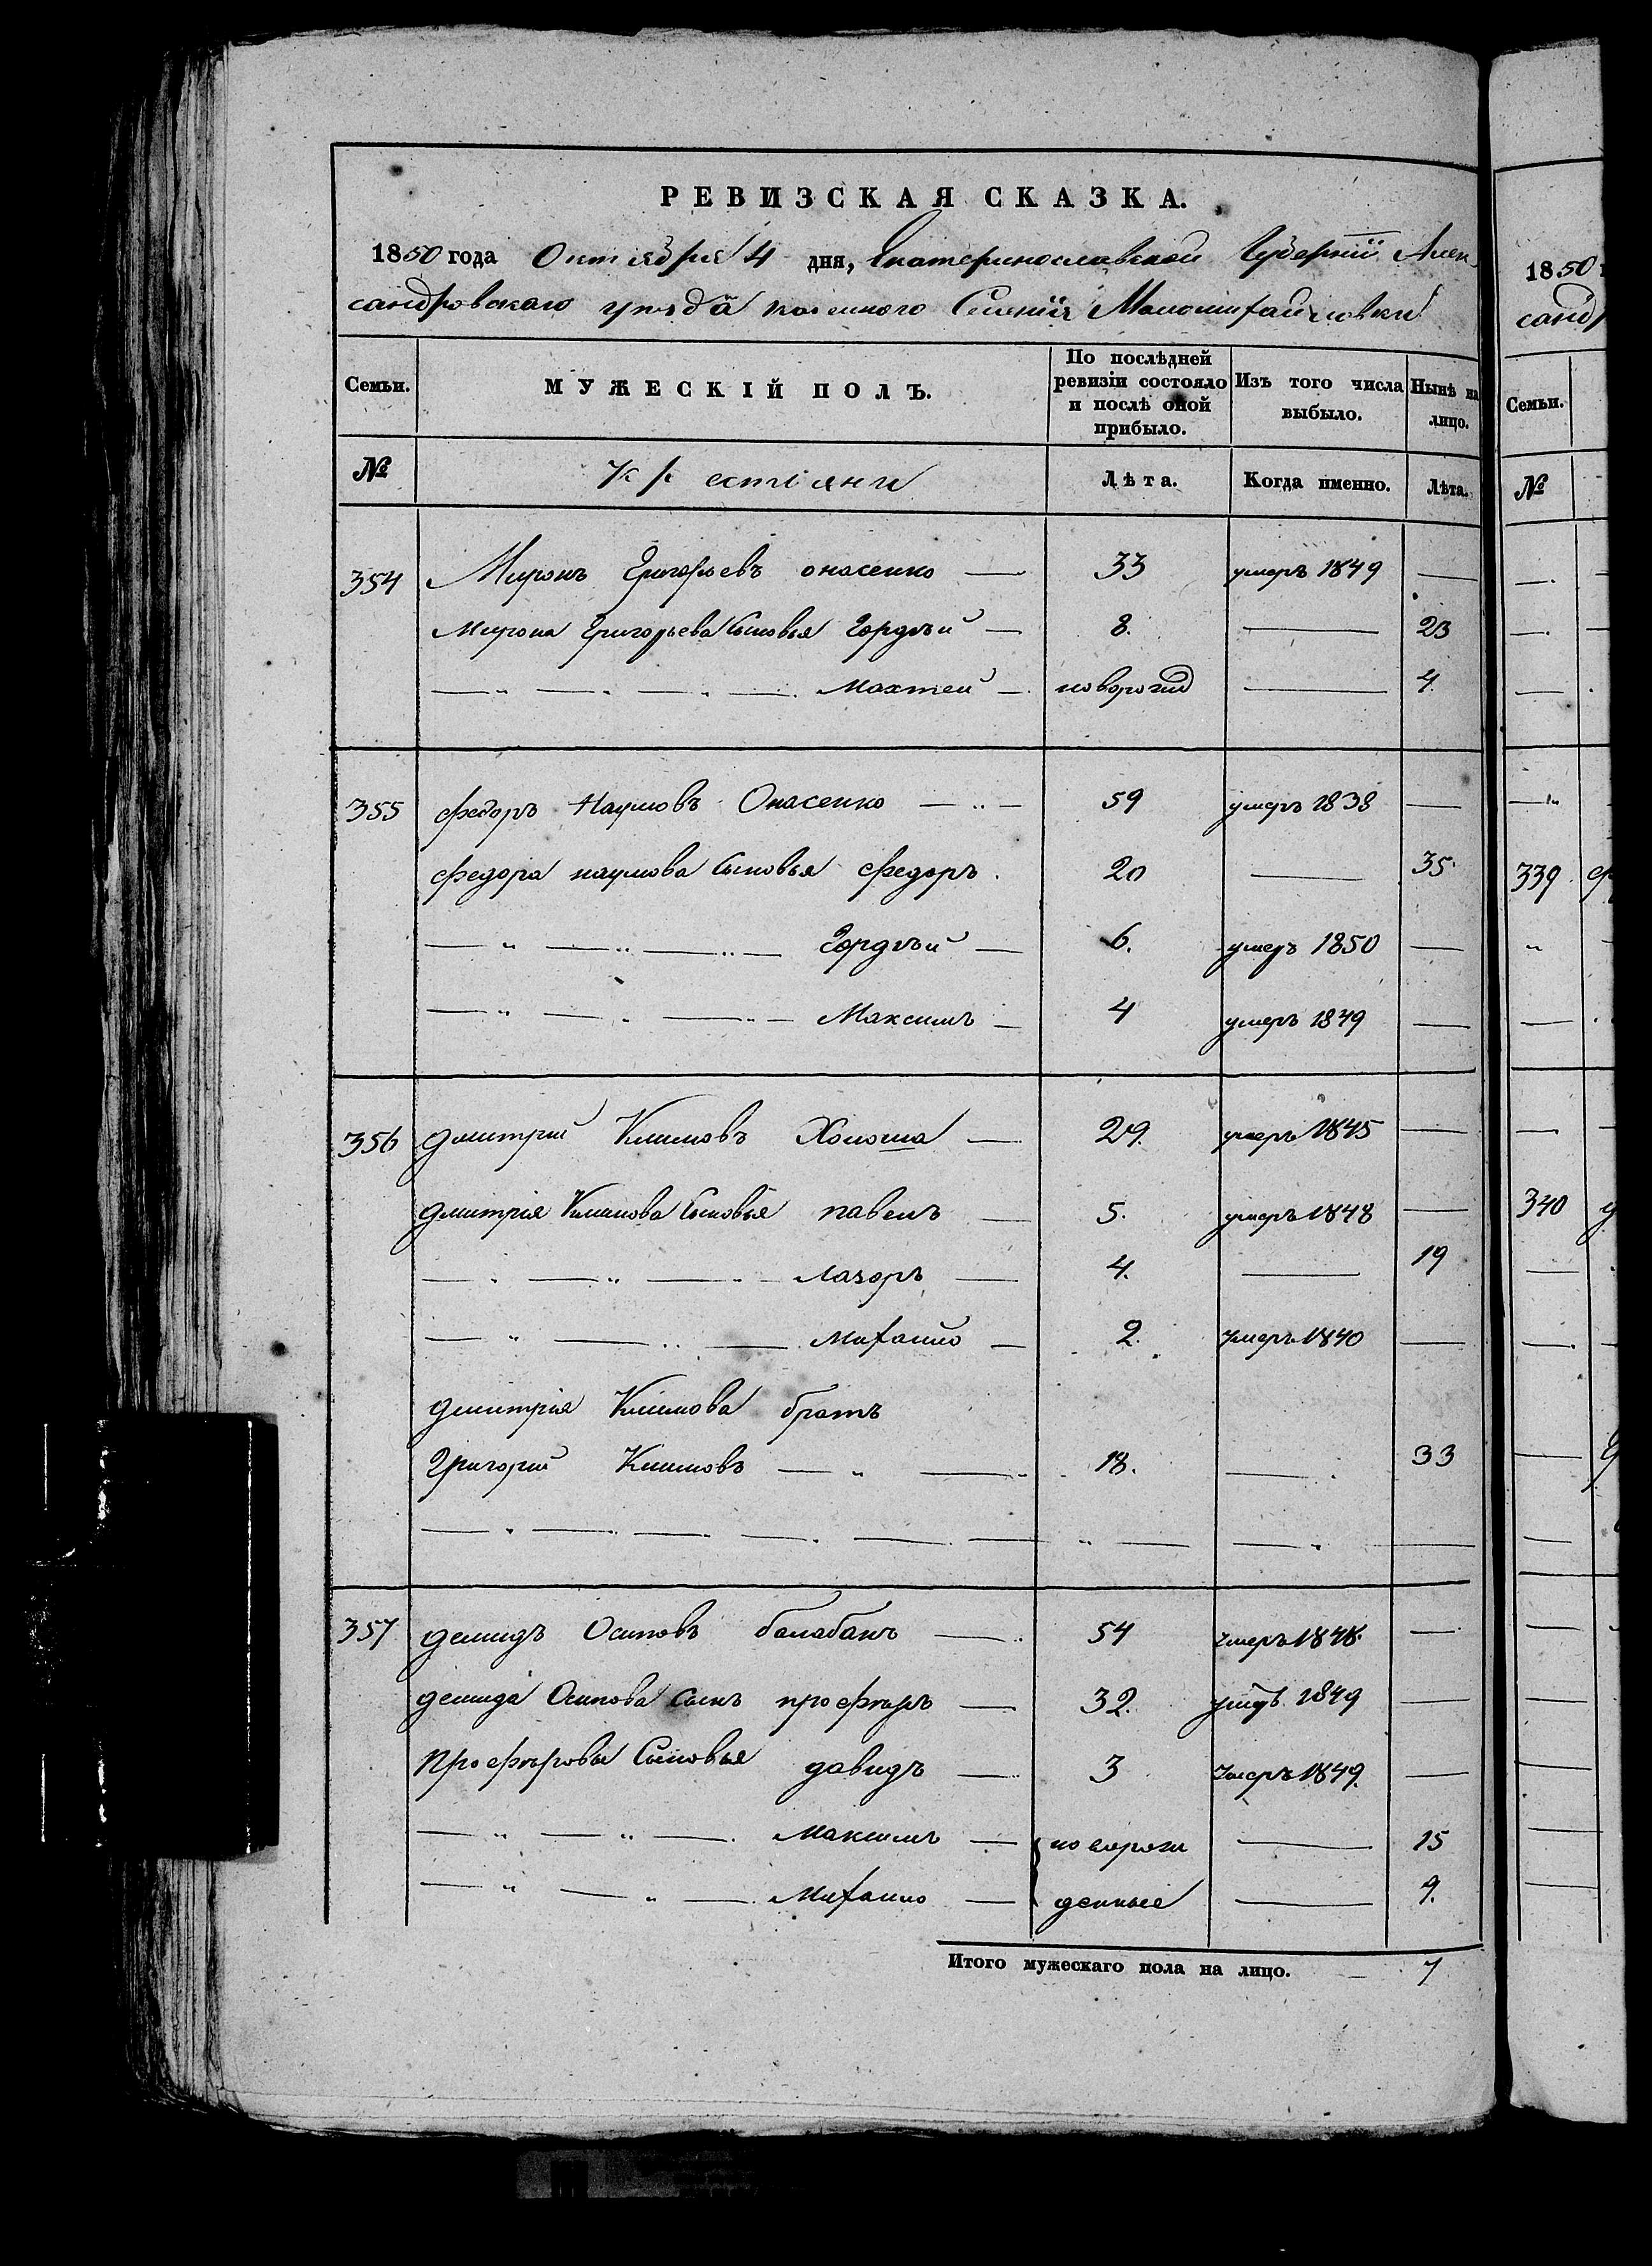 РЕВИЗСКАЯ СКАЗКА.
1850 года Октября 4 дня, Екатеринославской Губернiи Алек
сандровскаго уезда казенного Селенiя Маломихайловки
Семьи. МУЖЕСКІЙ ПОЛЪ. По послѣдней ревизіи состояло и послѣ оной прибыло. Изъ того числа выбыло. Нынѣ на лицо.
№ Крестіяни Лѣта. Когда именно. Лѣта.
354 Миронъ Григорьевъ Онасенко — 33 умеръ 1849 —
Мирона Григорьева Сыновья Гордѣй — 8. — 23
— „ — „ — „ — Махтей — новорожд — 4
355 Федоръ Наумовъ Онасенко — „ — 59 умеръ 1838 —
Федора наумова Сыновья Федоръ. 20 — 35.
— „ — „ — „ — Гордѣй — 6. умеръ 1850 —
— „ — „ — „ — Максимъ — 4 умеръ 1849 —
356 дмитрий Климовъ Холоша — 29. умеръ 1845 —
дмитрiя Климова Сыновья павелъ — 5. умеръ 1848 —
— „ — „ — „ — Лазоръ — 4. — 19
— „ — „ — Михайло — 2. умеръ 1840 —
дмитрiя Климова братъ
Григорий Климовъ — „ — „ 18. — 33
357 демидъ Осиповъ балабанъ — 54 умеръ 1848. —
демида Осипова Сынъ профиръ — 32. умеръ 1849 —
Профировы Сыновья давидъ — 3 умеръ 1849. —
— „ — „ — Максимъ — новорож — 15
— „ — „ — Михайло — денные — 9.
Итого мужескаго пола на лицо. — 7
1850
санд
Семьи.
№
339
340